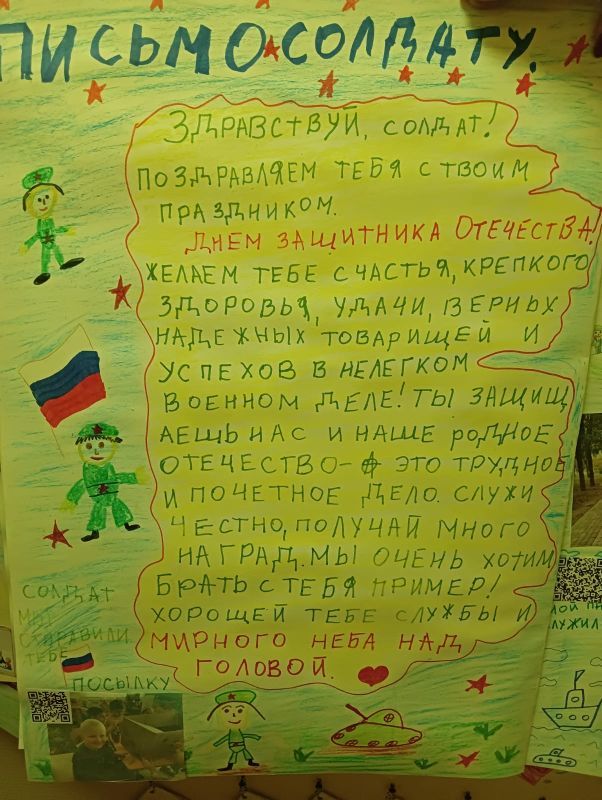 ПИСЬМО СОЛДАТУ.
ЗДРАВСТВУЙ, СОЛДАТ!
ПОЗДРАВЛЯЕМ ТЕБЯ С ТВОИМ
ПРАЗДНИКОМ.
ДНЕМ ЗАЩИТНИКА ОТЕЧЕСТВА!
ЖЕЛАЕМ ТЕБЕ СЧАСТЬЯ, КРЕПКОГО
ЗДОРОВЬЯ, УДАЧИ, ВЕРНЫХ
НАДЕЖНЫХ ТОВАРИЩЕЙ И
УСПЕХОВ В НЕЛЕГКОМ
ВОЕННОМ ДЕЛЕ! ТЫ ЗАЩИЩ
АЕШЬ НАС И НАШЕ РОДНОЕ
ОТЕЧЕСТВО- ЭТО ТРУДНОЕ
И ПОЧЕТНОЕ ДЕЛО. СЛУЖИ
ЧЕСТНО, ПОЛУЧАЙ МНОГО
НАГРАД. МЫ ОЧЕНЬ ХОТИМ
БРАТЬ С ТЕБЯ ПРИМЕР!
ХОРОЩЕЙ ТЕБЕ СЛУЖБЫ И
МИРНОГО НЕБА НАД
ГОЛОВОЙ.
СОЛДАТ
МЫ
ОТПРАВИЛИ
ТЕБЕ
ПОСЫЛКУ